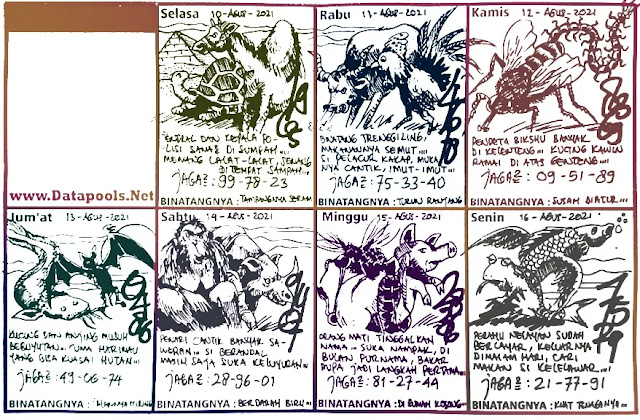 Selasa 10 - AGUS - 2021
JENDRAL DAN KEPALA PO-
LISI SANAS DI SUMPAH...
MENANG LACAT-LACAT, SENANG
DI TEMPAT SAMPAH...
JAGA²: 99-78-23
BINATANGNYA:
www.Datapools.Net
Rabu 11 - AGUS - 2021
BINATANG TRENGGILING,
MAKANANNYA SEMUT...
SI PELACUR KAKAP, MUKA
NYA CANTIK, IMUT-IMUT
JAGA²: 75-33-40
BINATANGNYA: TURUN RANJANG
Kamis 12 - AGUS - 2021
PENDETA BIKSHU BANYAK
DI KELENTENG... KUCING KAWIN
RAMAI DI ATAS GENTENG...
JAGA²: 09-51-89
BINATANGNYA: SUSAH DIATUR...
Jum'at 13 - AGUS - 2021
KUCING DAN ANJING MUSUH
BEBUYUTAN... HARIMAU
YANG BISA KUASAI HUTAN...
JAGA²: 49-06-74
BINATANGNYA:
Sabtu 14 - AGUS - 2021
PENARI CANTIK BANYAK SA-
WERAN... SI BERANDAL
MASIH SAJA SUKA KELUYURAN
JAGA²: 28-96-01
BINATANGNYA: BERDARAH BIRU...
Minggu 15 - AGUS - 2021
ORANG MATI TINGGALKAN
NAMA... SUKA NAMPAK, DI
BULAN PURNAMA, BAKAR
DUPA JADI LANGKAH PERTAMA...
JAGA²: 81-27-44
BINATANGNYA: DI RUMAH KOSONG...
Senin 16 - AGUS - 2021
PERAHU NELAYAN SUDAH
BERLAYAR, KELUARNYA
DIMALAM HARI, CARI
MAKAN SI KELELAWAR...
JAGA²: 21-77-91
BINATANGNYA: KUAT TENAGANYA...